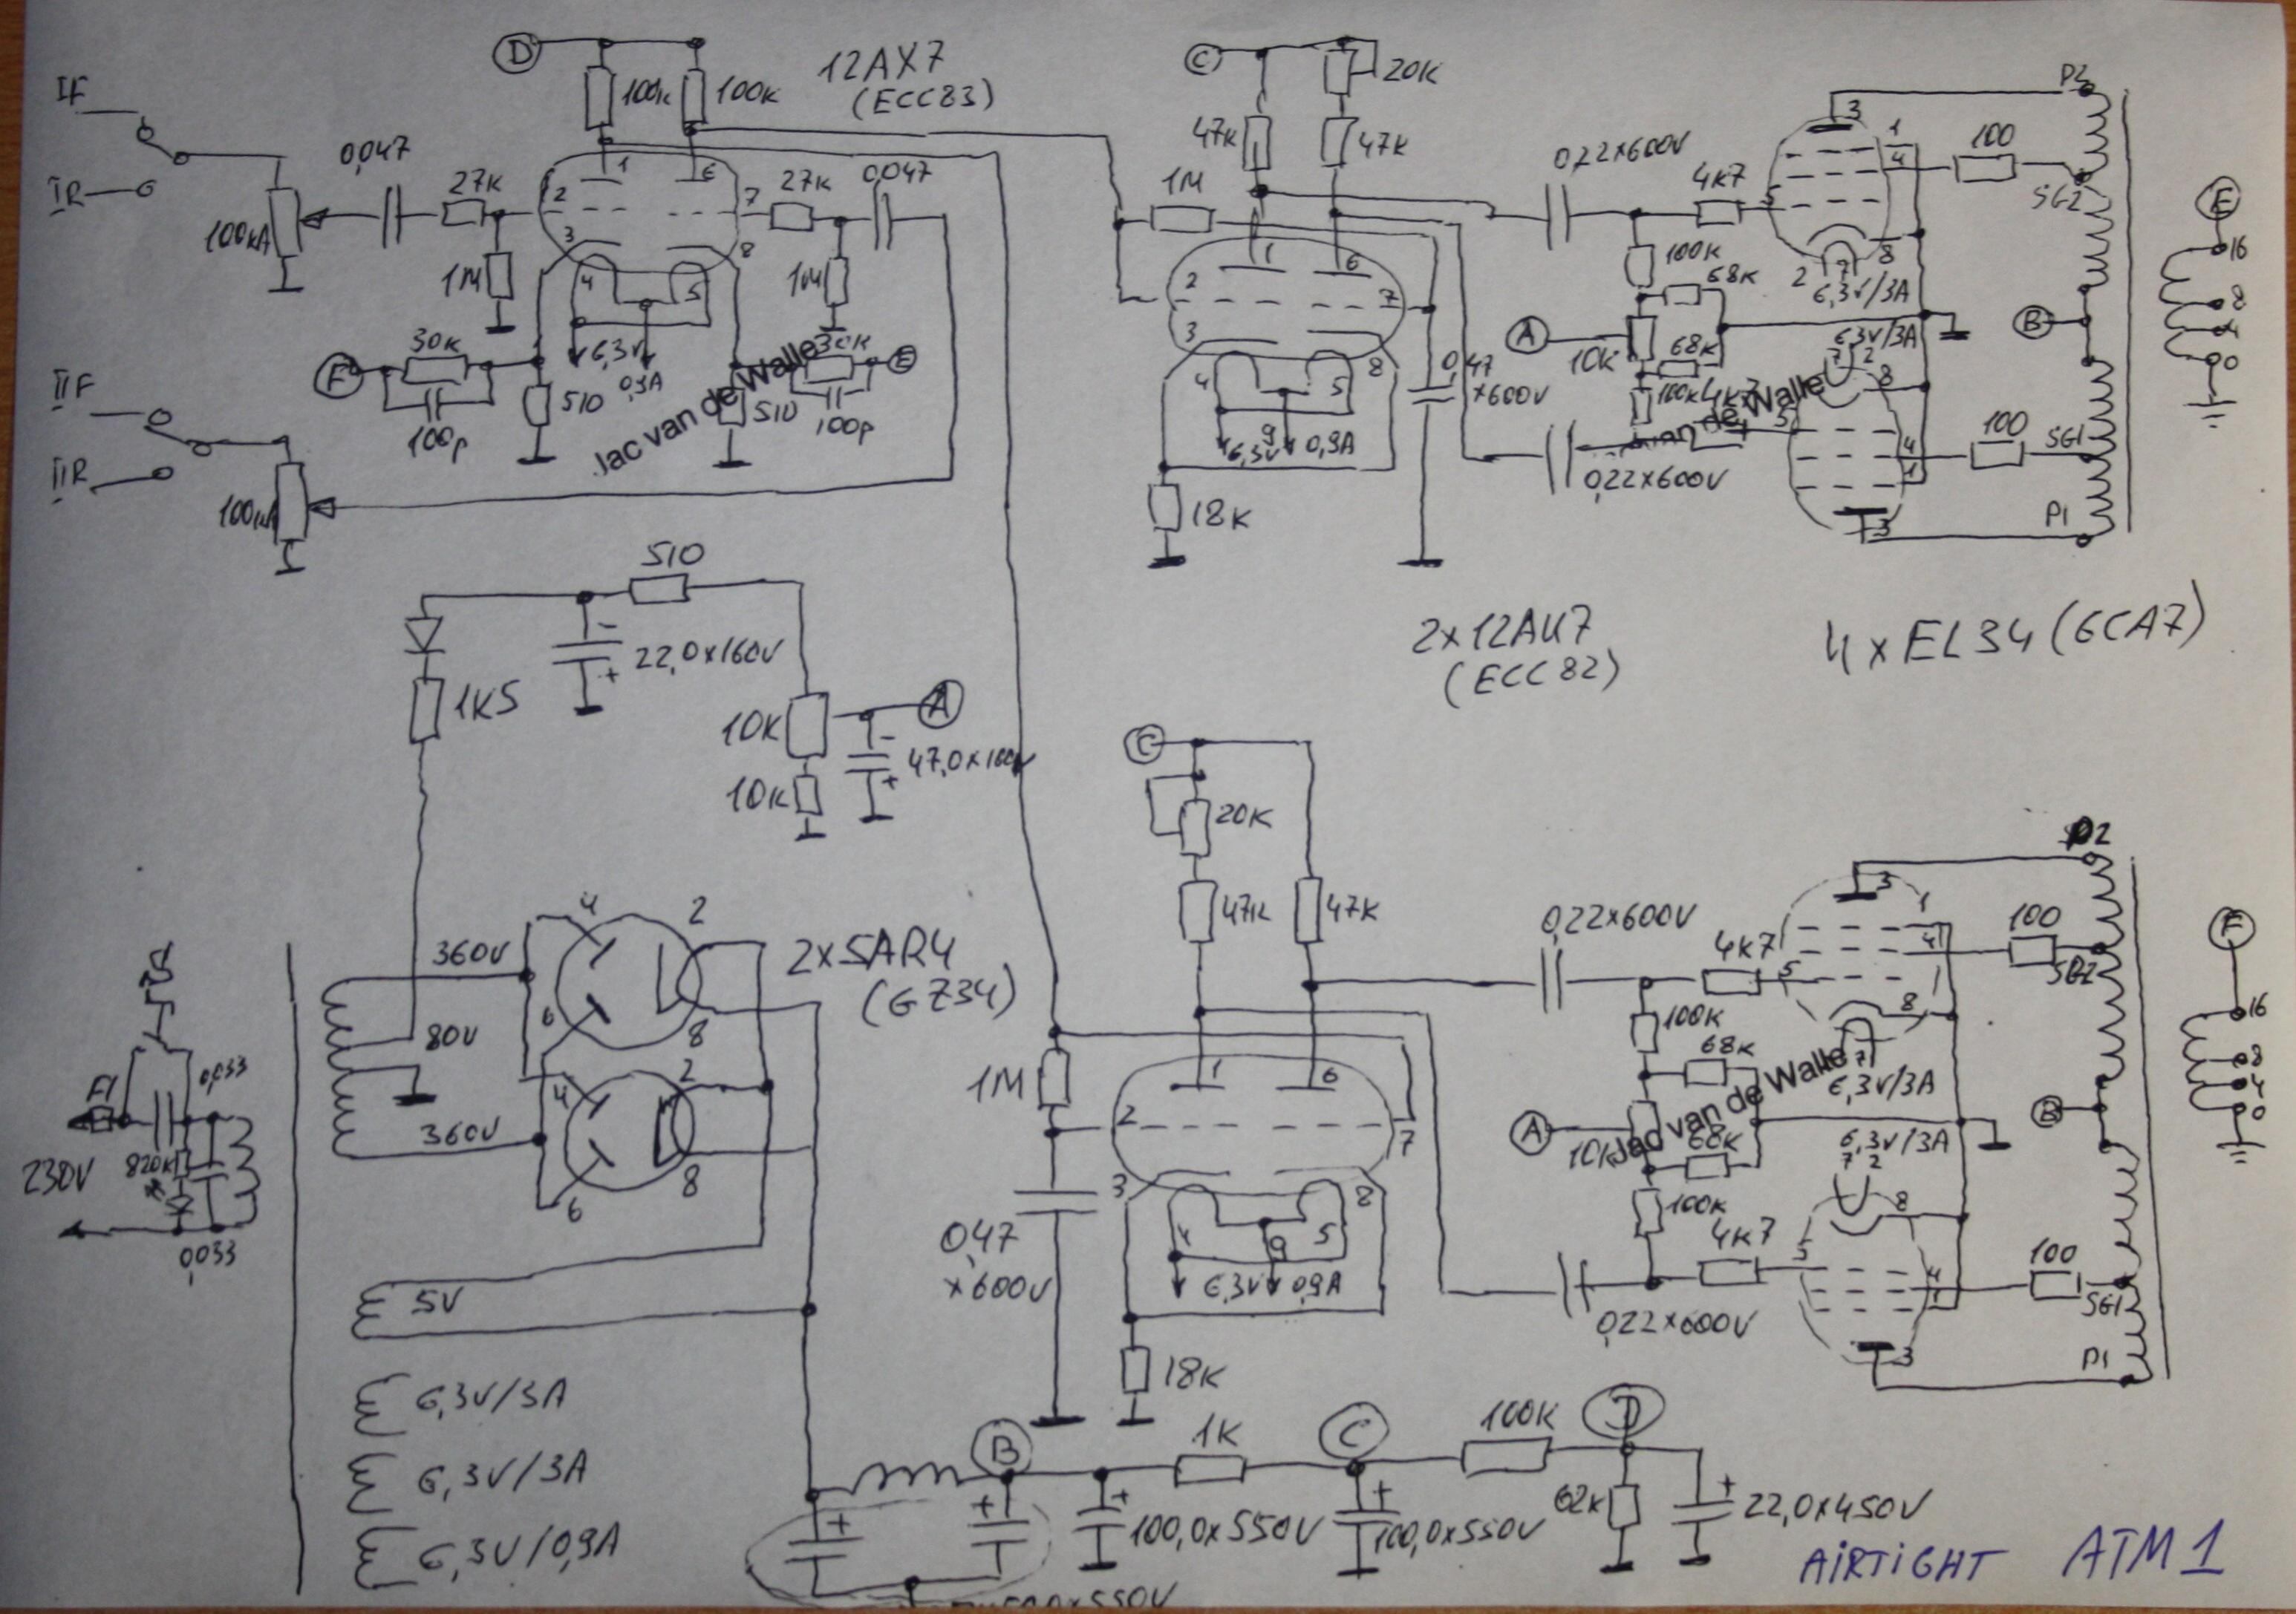 IF
IR
100kA
0,047
27K
1M
D
100k
100K
12AX7
(ECC83)
1
6
2
7
3
8
4
5
27K
0,047
1M
6,3V
0,9A
F
30K
100p
510
30K
E
510
100p
Jac van de Walle
IIF
IIR
C
20K
47K
47K
1M
1
6
2
7
3
8
4
5
9
6,3V
0,9A
18K
0,47
×600V
0,22×600V
4K7
100K
68K
A
10K
68K
100K
4K7
0,22×600V
3
1
4
5
8
2
7
6,3V/3A
6,3V/3A
7
2
8
5
4
1
3
100
100
P2
SG2
B
SG1
P1
E
16
8
4
0
510
22,0×160V
1K5
10K
A
47,0×160V
10K
2×12AU7
(ECC82)
4×EL34 (6CA7)
C
20K
47K
47K
1M
1
6
2
7
3
8
4
9
5
6,3V
0,9A
0,47
×600V
18K
0,22×600V
4K7
100K
68K
A
10K
68K
100K
4K7
0,22×600V
Jac van de Walle
3
1
4
5
8
7
6,3V/3A
6,3V/3A
7
2
8
5
4
1
3
100
100
P2
B
SG1
P1
F
16
8
4
0
360V
80V
360V
4
2
6
8
4
2
6
8
2×5AR4
(GZ34)
F1
0,033
820K
230V
0,033
5V
6,3V/3A
6,3V/3A
6,3V/0,9A
B
1K
C
100K
D
100,0×550V
100,0×550V
62K
22,0×450V
AIRTIGHT ATM1